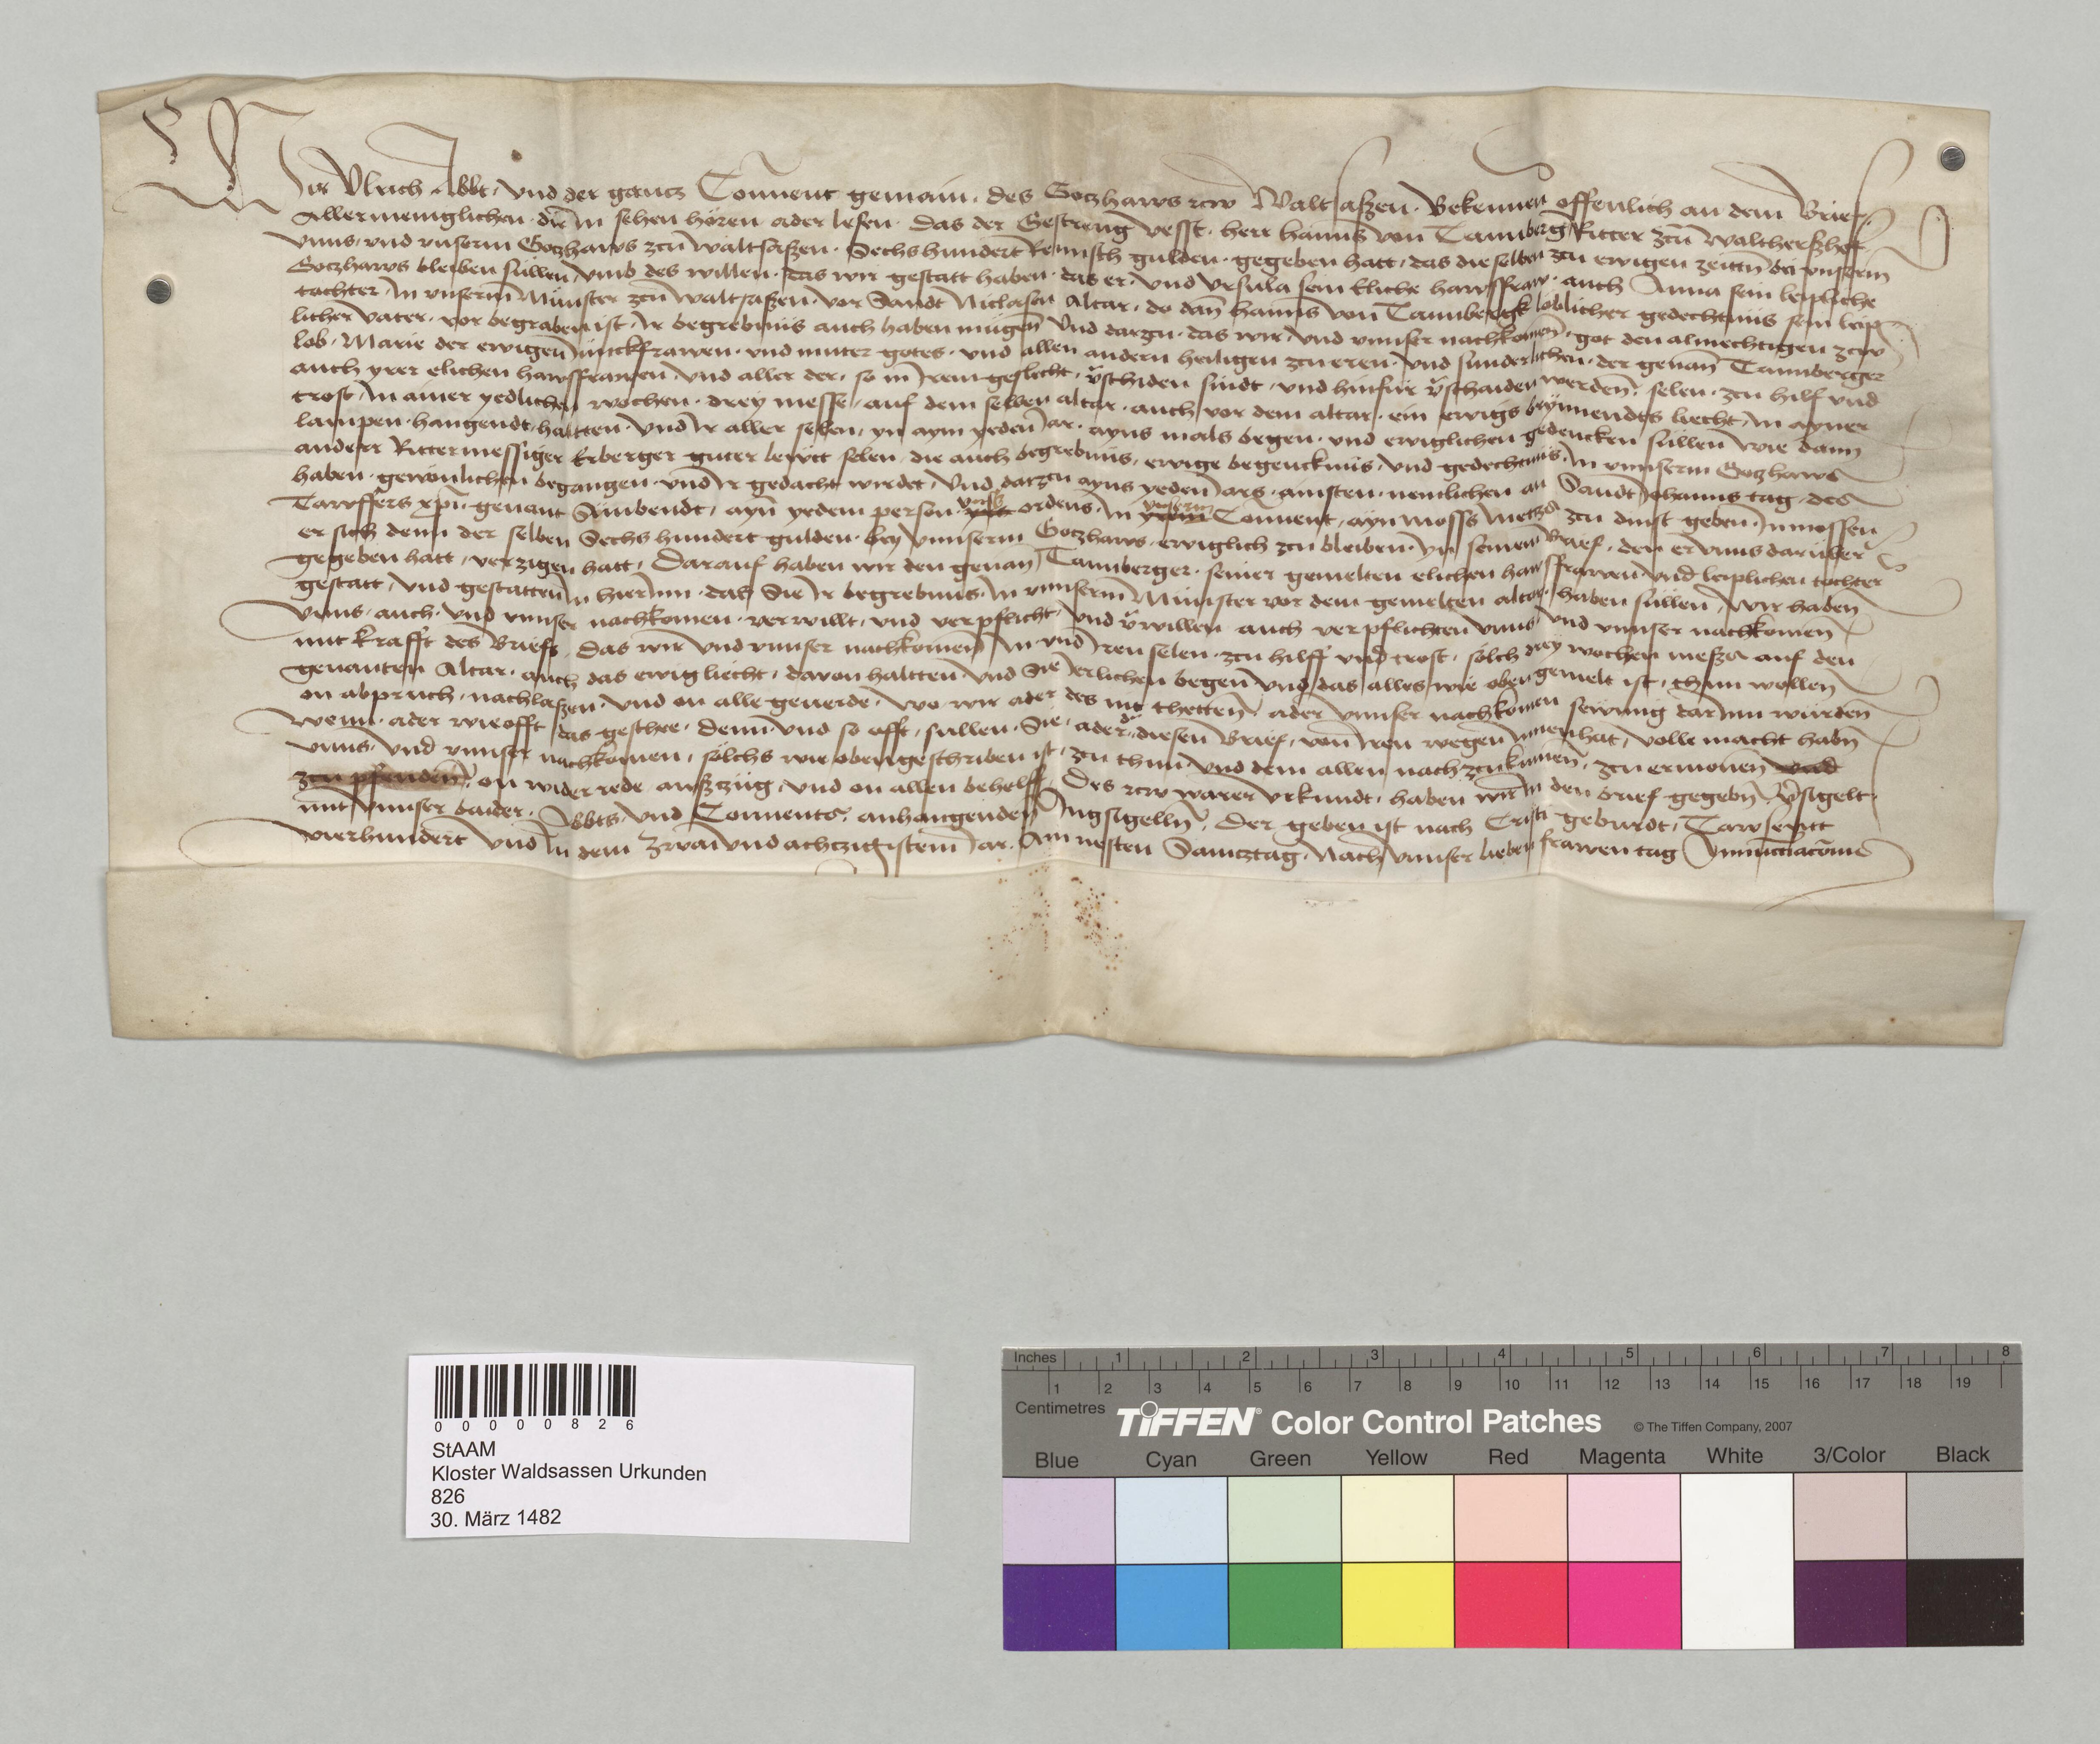 Wir Vlrich Abbt, vnd der gantz Conuent gemain, des Gotzhaws zcw Waltsaßen. Bekennen offenlich an dem Brief.
Allermeniglichen. die in sehen hören ader lesen. Das der Gestreng vesst. herr hanns von Tannberg Ritter zcu Waltherßhof
vnns, vnd vnserm Gotzhaws zcu Waltsaßen. Sechshundert Reinisch gulden. gegeben hatt, das dieselben zcu ewigen zeittn bei vnserm
Gotzhaws bleiben süllen, vmb des willen. das wir gestatt haben. das er. vnd Vrsula sein Eliche hawssfraw. auch Anna sein leipliche
tochter, In vnserm Münster zcu Waltsaßen. vor Sandt Niclasen Altar, do dan hanns von Tannbergk löblicher gedechtnüs sein leip-
licher vater, vor begraben ist, Ir begrebnüs auch haben mügen Vnd darzu. das wir, vnd vnnser nachkomen. got den almechtigen zcw
lob. Marie der ewigen Junckfrawen. vnd muter gotes. vnd allen andern heiligen zcu eren. vnd sunderlichen. der genan Tannberger
auch yrer elichen hawssfrawen. vnd aller der, so in Irem geslecht, v̄schiden sindt, vnd hinfür v̄schaiden werden. selen. zcu hilf vnd
trost, In ainer yedlichen wochen. drey messe, auf dem selben altar. auch vor dem altar. ein ewigs brynnendts liecht, In ayner
lampen. hangendt, haltten. Vnd Ir aller selen, yn aym yeden Jar. ayns mals begen. vnd ewiglichen gedencken süllen wie dann
anderr Rittermessiger Erberger guter lewtt selen, die auch begrebnüs, ewige begencknüs, vnd gedechtnüs. In vnnserm Gotzhaws
haben. gewönlichen begangen. vnd Ir gedacht wirdet, Vnd darzcu ayns yeden Jars. ainsten. nemlichen an Sandt Johanns tag. des
Tawffers xp̄i. genant Sunbendt, ayn yedem person. vnsers ordens. In vnserm Conuent, ayn moss Metzs zcu dinst geben. Inmossen
er sich denn der selben Sechshundert gulden. bey vnnserm Gotzhaws. ewiglich zcu bleiben. yn seinem brief, den er vnns darüber
gegeben hatt, verzigen hatt, Darauf haben wir den genan Tannberger. seiner gemelten elichen hawssfrawen. vnd leiplichen tochter
gestatt, vnd gestatten In hierInn. das Sie Ir begrebnus. In vnnserm Münster vor dem gemelten altar. haben süllen, Wir haben
vnns. auch. vnd vnnser nachkomen. verwillt, vnd verpflicht, vnd v̄willen auch verpflichten vnns, vnd vnnser nachkomen
mit krafft des Briefs, Das wir vnd vnnser nachkomen In vnd Iren selen. zcu hilff vnd trost, sölch drey wochen meßen auf den
genanten Altar. auch das ewig liecht, daron haltten. vnd Sie Jerlichen begen vnd das alles wie oben gemelt ist, thun wollen
on abpruch, nachlaßen. vnd on alle geuerde, wo wir ader des nit thetten, ader vnnser nachkomen sewmig darInn würden
wenn. ader wieofft das geschee, denn vnd so offt, sullen. Sie, ader der diesen Brief, von Iren wegen Innenhat, volle macht habn
vnns. vnd vnnser nachkomen, sölchs wie oben geschriben ist, zcu thun vnd dem allen nachzcukumen, zcu ermonen vnd
zcu pfenden, on widerrede außzüg, vnd on allen behelff, Des zcw warer vrkundt, haben wir In den brief gegebn v̄sigelt.
mit vnnser baider, Abbts. vnd Conuents, anhangenden Ingsigelln, Der geben ist nach Cristi geburdt, Tawsentt
vierhundert vnd In dem Zwai vnd achtzigistem Jar. Am nesten Samztag. Nach vnnser lieben frawen tag Annūctiacōnis
0 0 0 0 0 8 2 6
StAAM
Kloster Waldsassen Urkunden
826
30. März 1482
Inches 1 2 3 4 5 6 7 8
1 2 3 4 5 6 7 8 9 10 11 12 13 14 15 16 17 18 19
Centimetres
TIFFEN® Color Control Patches © The Tiffen Company, 2007
Blue Cyan Green Yellow Red Magenta White 3/Color Black